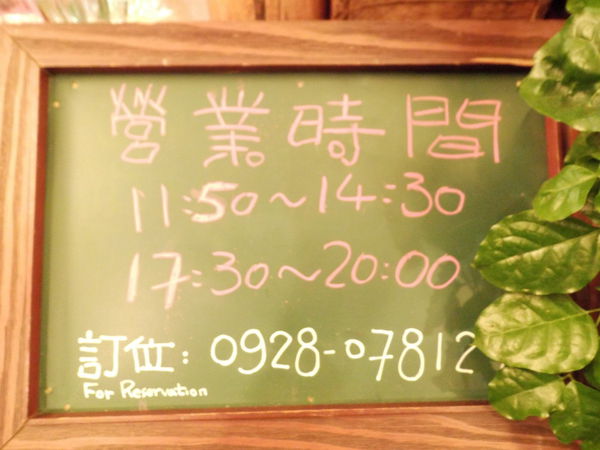 營業時間
11:50~14:30
17:30~20:00
訂位: 0928-07812
For Reservation